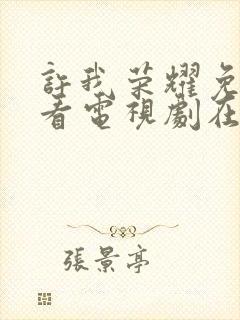 許我荣耀免
看電視劇在
張景亭